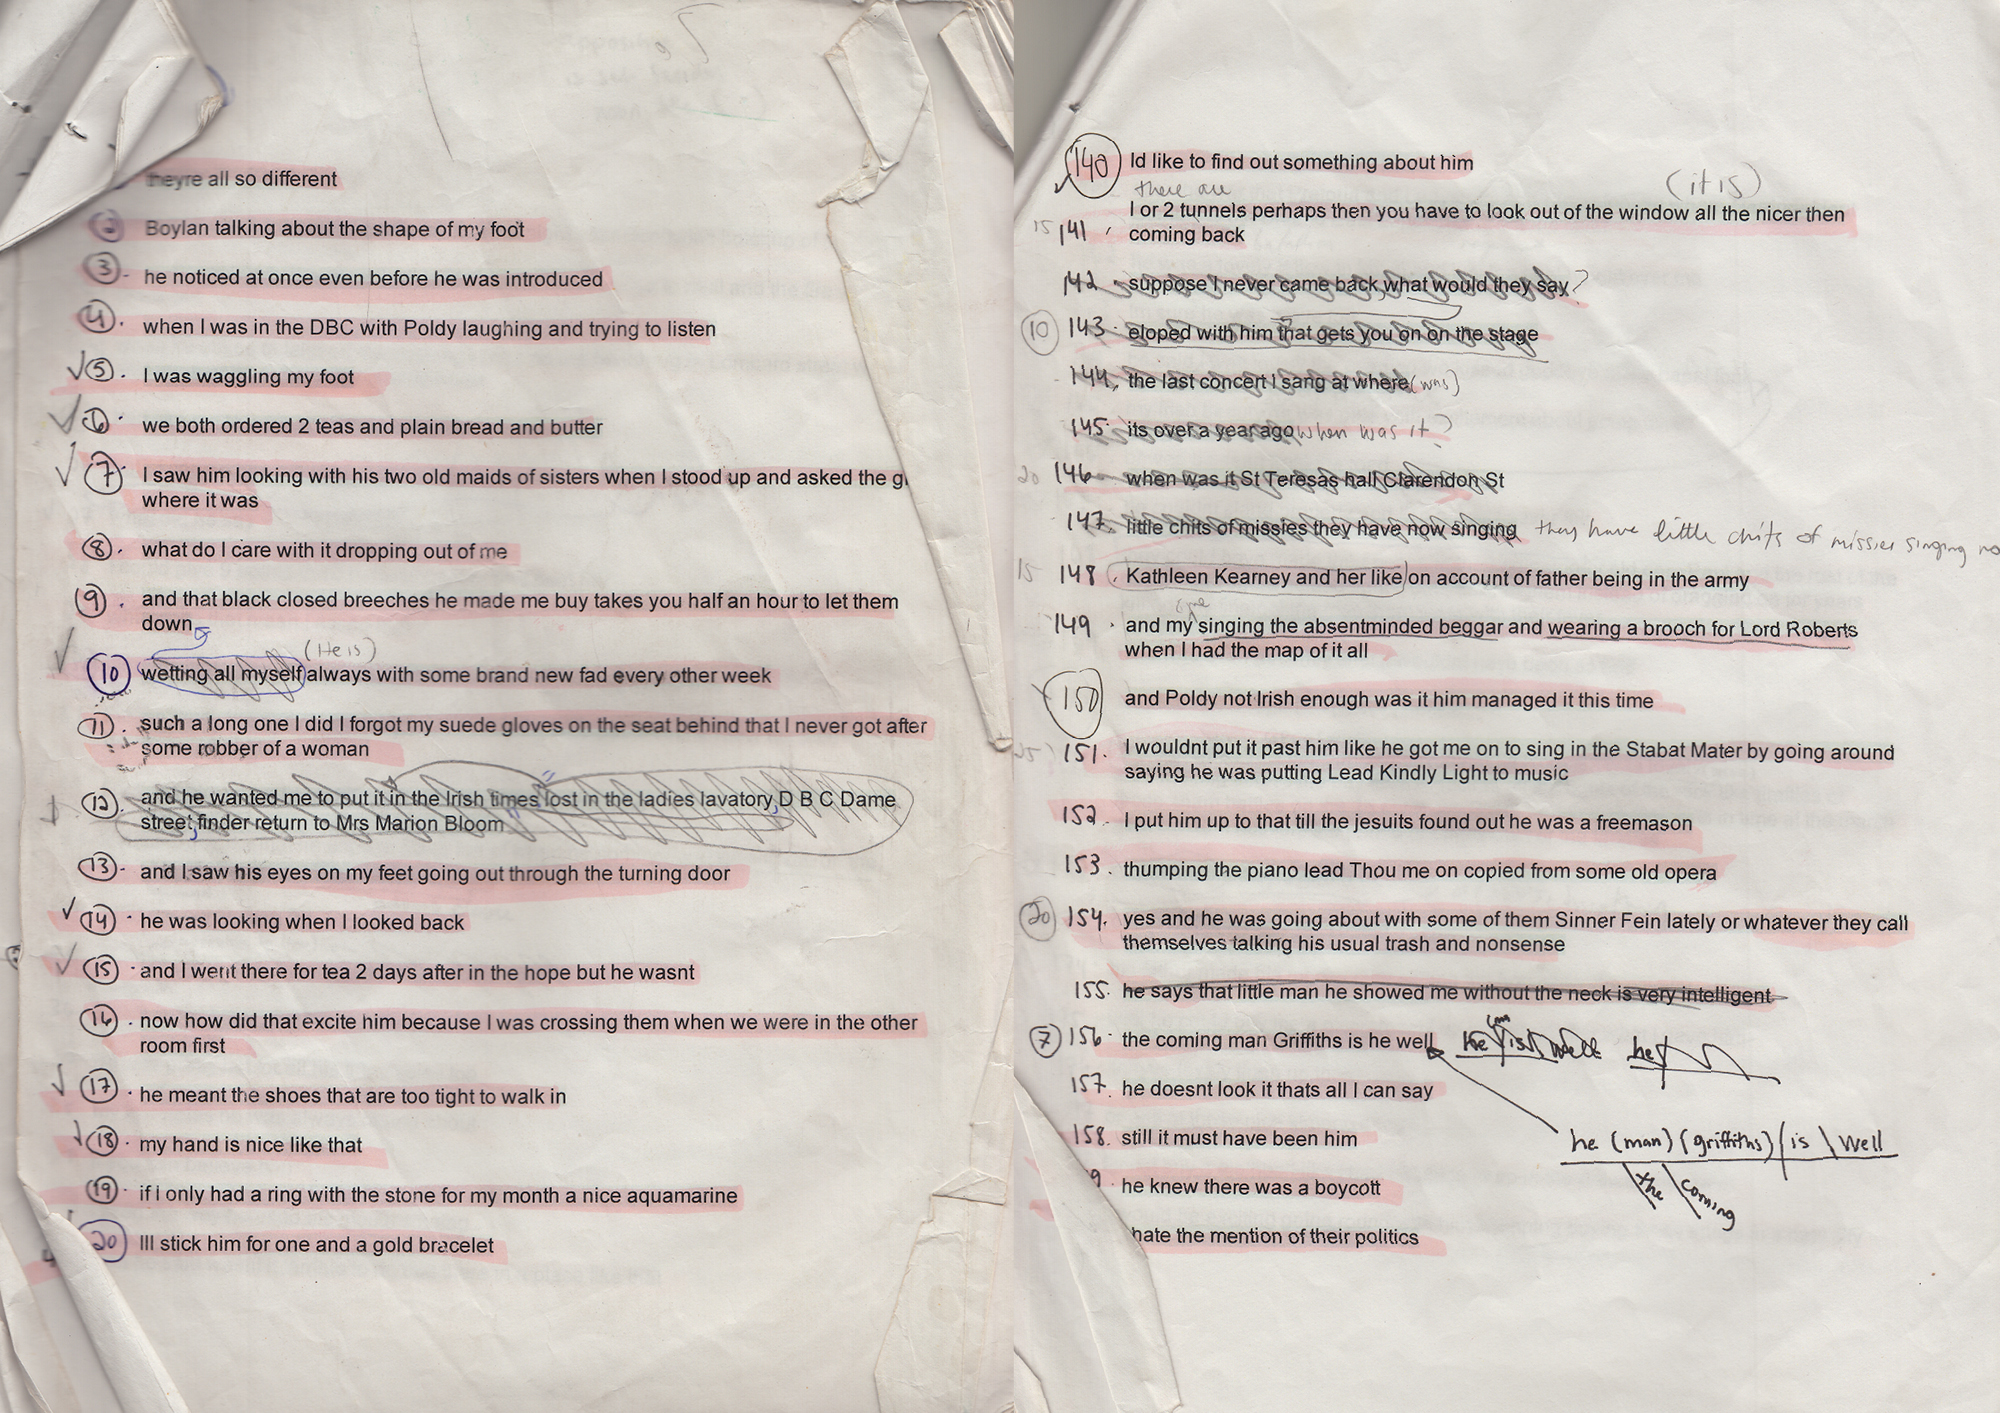 theyre all so different
2 Boylan talking about the shape of my foot
3 he noticed at once even before he was introduced
4 when I was in the DBC with Poldy laughing and trying to listen
5 I was waggling my foot
6 we both ordered 2 teas and plain bread and butter
7 I saw him looking with his two old maids of sisters when I stood up and asked the
where it was
8 what do I care with it dropping out of me
9 and that black closed breeches he made me buy takes you half an hour to let them
down
(He is)
10 wetting all myself always with some brand new fad every other week
11 such a long one I did I forgot my suede gloves on the seat behind that I never got after
some robber of a woman
12 and he wanted me to put it in the Irish times lost in the ladies lavatory, D B C Dame
street, finder return to Mrs Marion Bloom
13 and I saw his eyes on my feet going out through the turning door
14 he was looking when I looked back
15 and I went there for tea 2 days after in the hope but he wasnt
16 now how did that excite him because I was crossing them when we were in the other
room first
17 he meant the shoes that are too tight to walk in
18 my hand is nice like that
19 if I only had a ring with the stone for my month a nice aquamarine
20 Ill stick him for one and a gold bracelet
140 Id like to find out something about him
there are (it is)
I or 2 tunnels perhaps then you have to look out of the window all the nicer then
15 141 coming back
142 suppose I never came back what would they say?
10 143 eloped with him that gets you on on the stage
144 the last concert I sang at where (was)
145 its over a year ago when was it?
20 146 when was it St Teresas hall Clarendon St
147 little chits of missies they have now singing they have little chits of missies singing no
15 148 Kathleen Kearney and her like on account of father being in the army
149 and my singing the absentminded beggar and wearing a brooch for Lord Roberts
when I had the map of it all
150 and Poldy not Irish enough was it him managed it this time
25 151. I wouldnt put it past him like he got me on to sing in the Stabat Mater by going around
saying he was putting Lead Kindly Light to music
152. I put him up to that till the jesuits found out he was a freemason
153. thumping the piano lead Thou me on copied from some old opera
20 154. yes and he was going about with some of them Sinner Fein lately or whatever they call
themselves talking his usual trash and nonsense
155. he says that little man he showed me without the neck is very intelligent
7 156 the coming man Griffiths is he well he is well he
157. he doesnt look it thats all I can say
158. still it must have been him
he (man) (griffiths) / is \ well
the coming
9 he knew there was a boycott
hate the mention of their politics